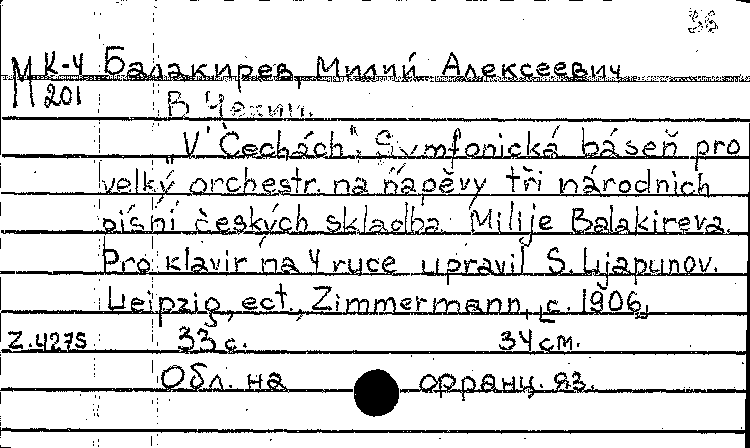 36
М К-4 Балакирев, Милий Алексеевич
201 В Чехии.
"V Čechách". Symfonická báseň pro
velký orchestr. na nápěvy tři národnich
pisní českých skladba Milije Balakireva.
Pro klavir na 4 ruce upravil S. Ljapunov.
Leipzig, ect., Zimmermann, [c. 1906]
Z.4275 33 с. 34 см.
Обл. на франц. яз.